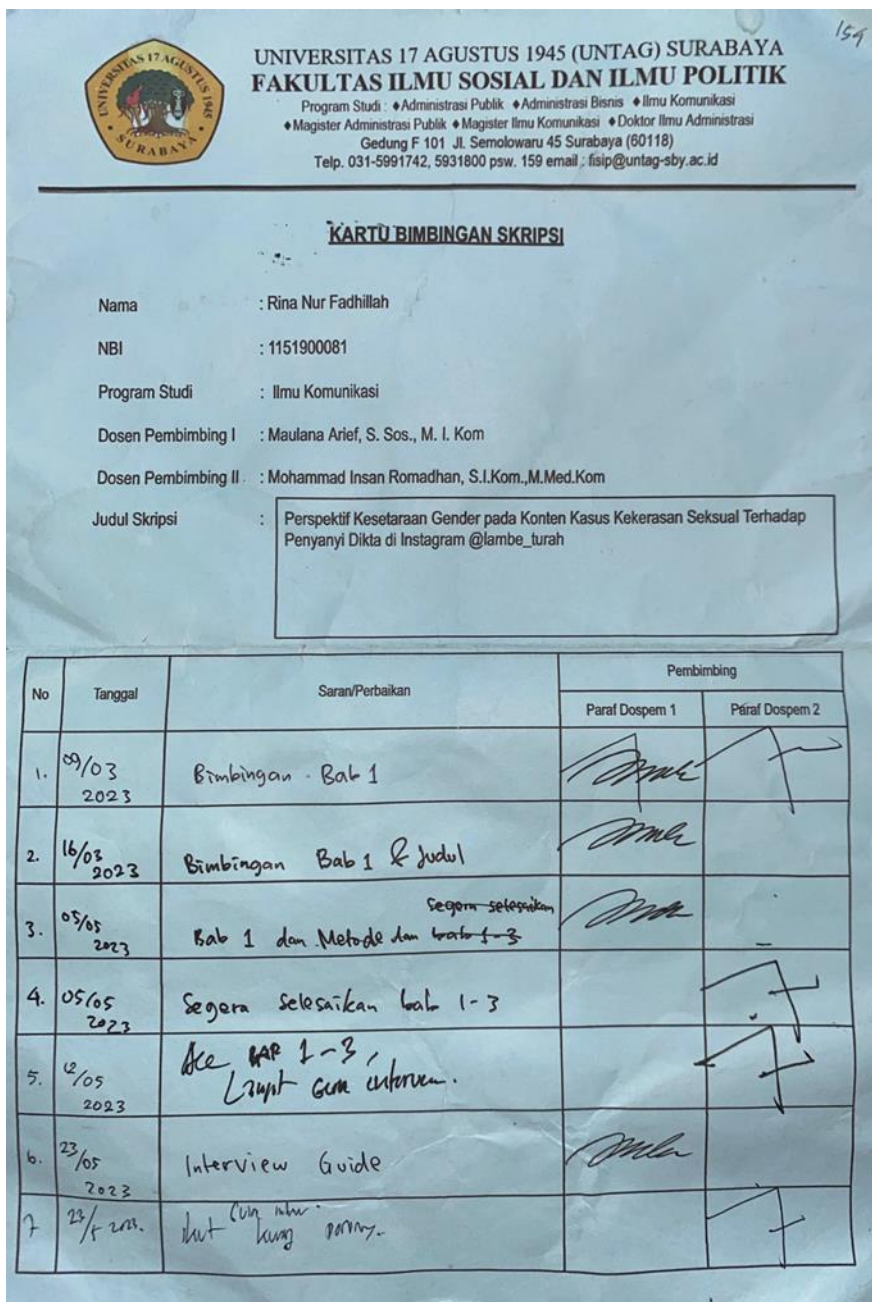 159
UNIVERSITAS 17 AGUSTUS 1945
SURABAYA
UNIVERSITAS 17 AGUSTUS 1945 (UNTAG) SURABAYA
FAKULTAS ILMU SOSIAL DAN ILMU POLITIK
Program Studi : ♦Administrasi Publik ♦Administrasi Bisnis ♦Ilmu Komunikasi
♦Magister Administrasi Publik ♦Magister Ilmu Komunikasi ♦Doktor Ilmu Administrasi
Gedung F 101 Jl. Semolowaru 45 Surabaya (60118)
Telp. 031-5991742, 5931800 psw. 159 email : fisip@untag-sby.ac.id
KARTU BIMBINGAN SKRIPSI
Nama : Rina Nur Fadhillah
NBI : 1151900081
Program Studi : Ilmu Komunikasi
Dosen Pembimbing I : Maulana Arief, S. Sos., M. I. Kom
Dosen Pembimbing II : Mohammad Insan Romadhan, S.I.Kom.,M.Med.Kom
Judul Skripsi : Perspektif Kesetaraan Gender pada Konten Kasus Kekerasan Seksual Terhadap
Penyanyi Dikta di Instagram @lambe_turah
No Tanggal Saran/Perbaikan Pembimbing
Paraf Dospem 1 Paraf Dospem 2
1. 09/03 2023 Bimbingan Bab 1
2. 16/03 2023 Bimbingan Bab 1 & Judul
3. 05/05 2023 Bab 1 dan Metode dan bab 1-3
Segera selesaikan
4. 05/05 2023 Segera selesaikan bab 1-3
5. 12/05 2023 Acc BAB 1-3,
6. 23/05 2023 Interview Guide
7 23/5 2023.